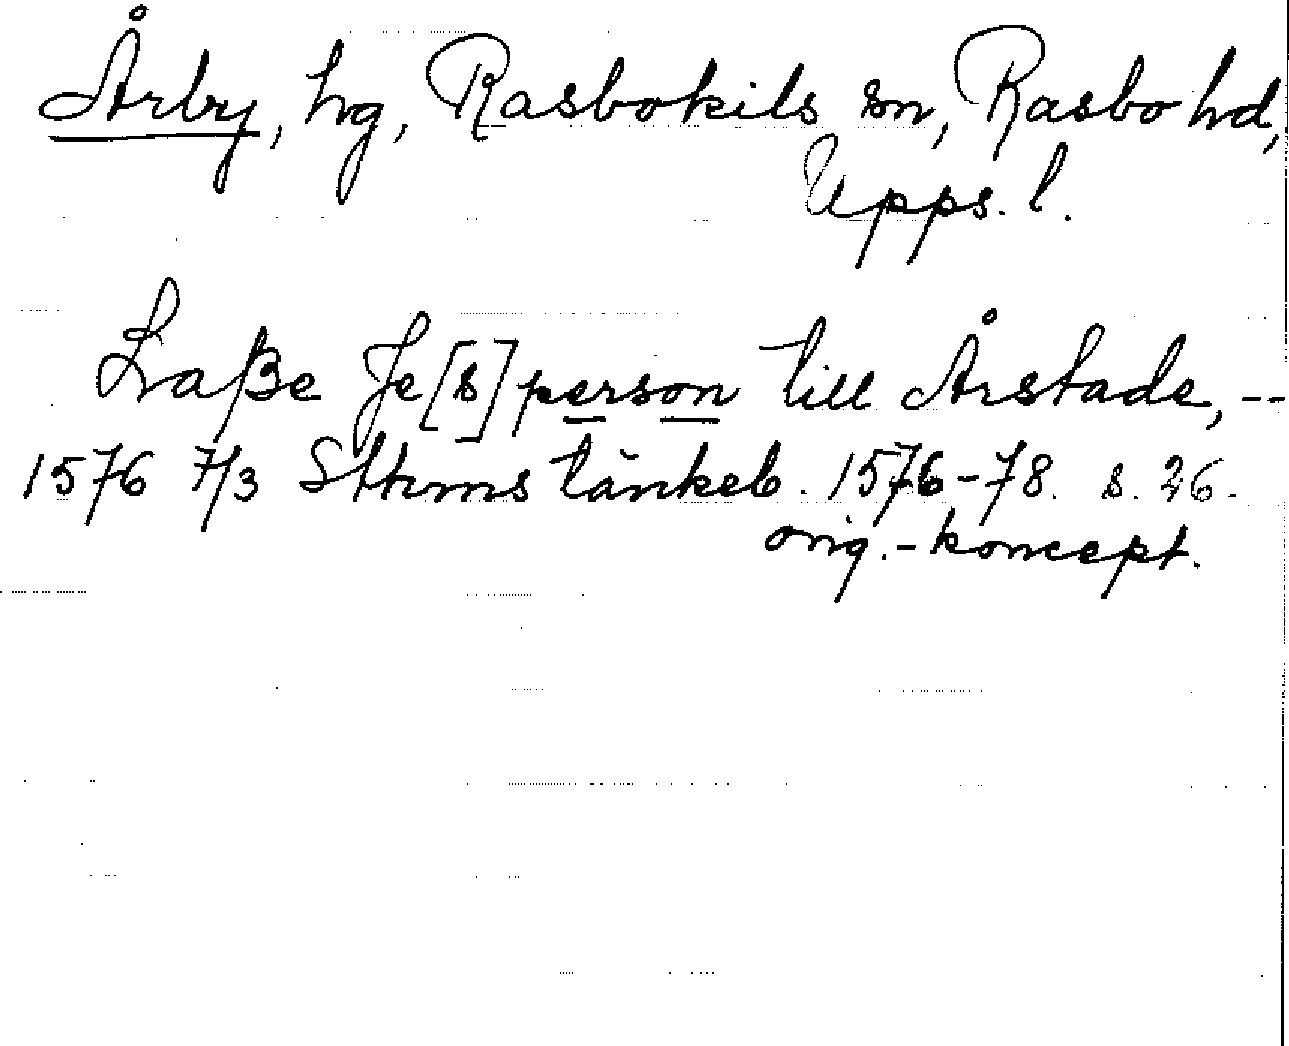 Årby, hg, Rasbokils sn, Rasbo hd,
Upps. l.
Laße Je[s]person till Årstade, --
1576 7/3 Sthms tänkeb. 1576-78. s. 26.
orig.-koncept.